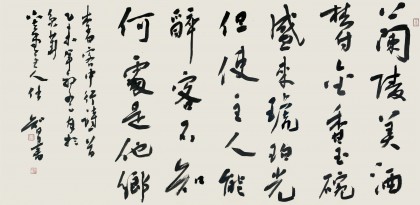 蘭陵美酒
鬱金香玉碗
盛來琥珀光
但使主人能
醉客不知
何處是他鄉
李白客中行詩一首
乙未年
主人
書